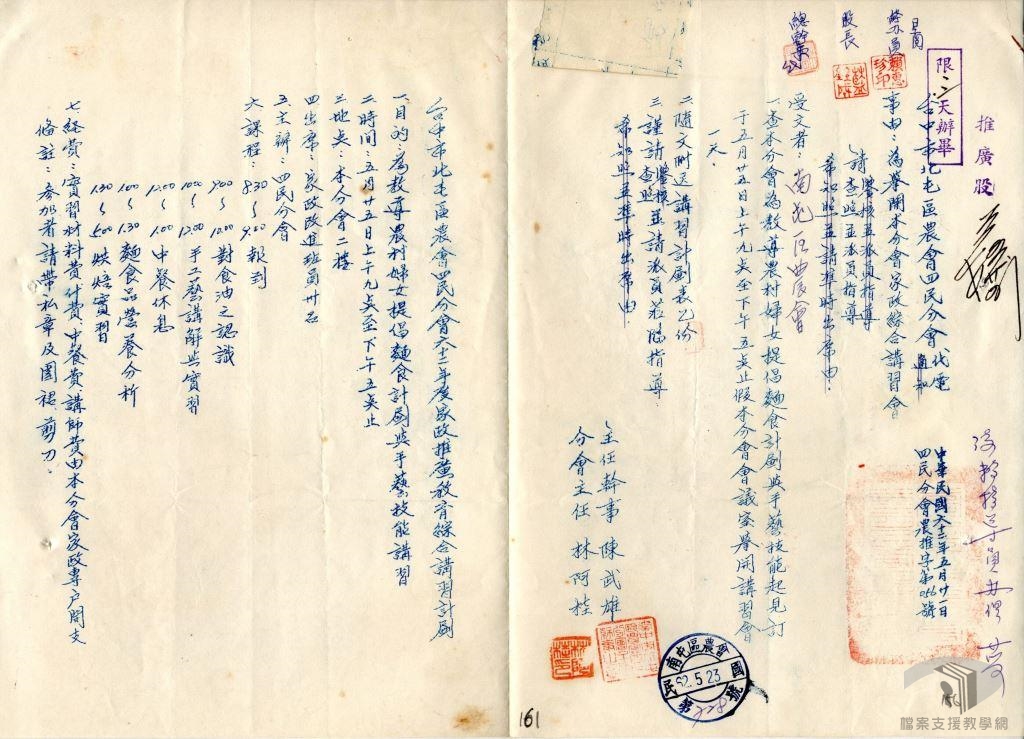 推廣股
限二天辦畢
台中市北屯區農會四民分會代電
通知
中華民國六十二年五月廿一日
四民分會農推字第056號
事由：為舉開本分會家政綜合講習會
請鑒核並派員指導
請查照並派員指導
希知照並請準時出席由
受文者：南屯區農會
一、查本分會為教導農村婦女提倡麵食計劃與手藝技能起見訂
于五月廿五日上午九点至下午五点止假本分會會議室舉開講習會
一天
二、隨文附送講習計劃表乙份
三、謹請鑒核查照並請派員莅臨指導
希知照並準時出席由
主任幹事 陳武雄
分會主任 林阿桂
股長
總幹事
南屯區農會
62.5.23
民國
第 號
161
台中市北屯區農會四民分會六十二年度家政推廣教育綜合講習計劃
一、目的：為教導農村婦女提倡麵食計劃與手藝技能講習
二、時間：五月廿五日上午九点至下午五点止
三、地点：本分會二樓
四、出席：家政改進班員卅名
五、主辦：四民分會
六、課程：8.30～9.00 報到
9.00～10.00 對食油之認識
10.00～12.00 手工藝講解與實習
12.00～1.00 中餐休息
1.00～1.30 麵食品營養分析
1.30～5.00 烘焙實習
七、經費：實習材料費什費、中餐費講師費由本分會家政專戶開支
備註：參加者請帶私章及圍裙、剪刀。
檔案支援教學網